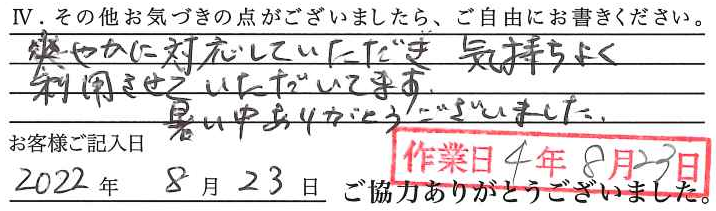 Ⅳ．その他お気づきの点がございましたら、ご自由にお書きください。
爽やかに対応していただき 気持ちよく
利用させていただいてます。
暑い中ありがとうございました。
お客様ご記入日
作業日 4年 8月23日
2022 年 8 月 23 日 ご協力ありがとうございました。